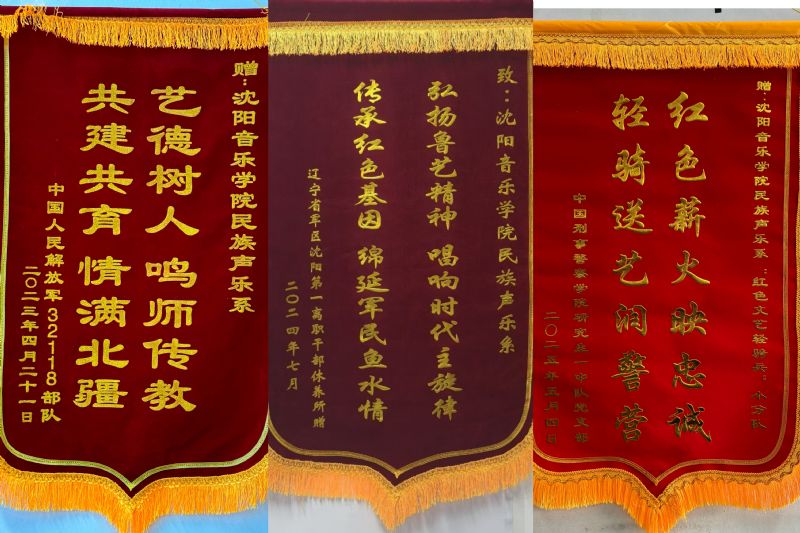 赠:沈阳音乐学院民族声乐系
艺德树人 鸣师传教
共建共育 情满北疆
中国人民解放军32118部队
二〇二三年四月二十一日
致:沈阳音乐学院民族声乐系
弘扬鲁艺精神 唱响时代主旋律
传承红色基因 绵延军民鱼水情
辽宁省军区沈阳第一离职干部休养所赠
二〇二四年七月
赠:沈阳音乐学院民族声乐系:红色文艺轻骑兵:小分队
红色薪火映忠诚
轻骑送艺润警营
中国刑事警察学院研究生一中队党支部
二〇二五年五月四日